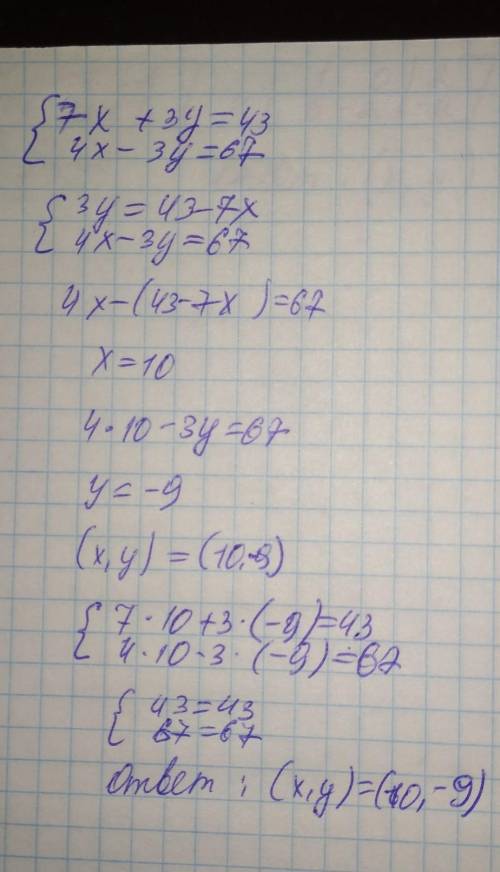 { 7x + 3y = 43
4x - 3y = 67
{ 3y = 43 - 7x
4x - 3y = 67
4x - (43 - 7x) = 67
x = 10
4 · 10 - 3y = 67
y = -9
(x, y) = (10, -9)
{ 7 · 10 + 3 · (-9) = 43
4 · 10 - 3 · (-9) = 67
{ 43 = 43
67 = 67
Ответ : (x, y) = (10, -9)